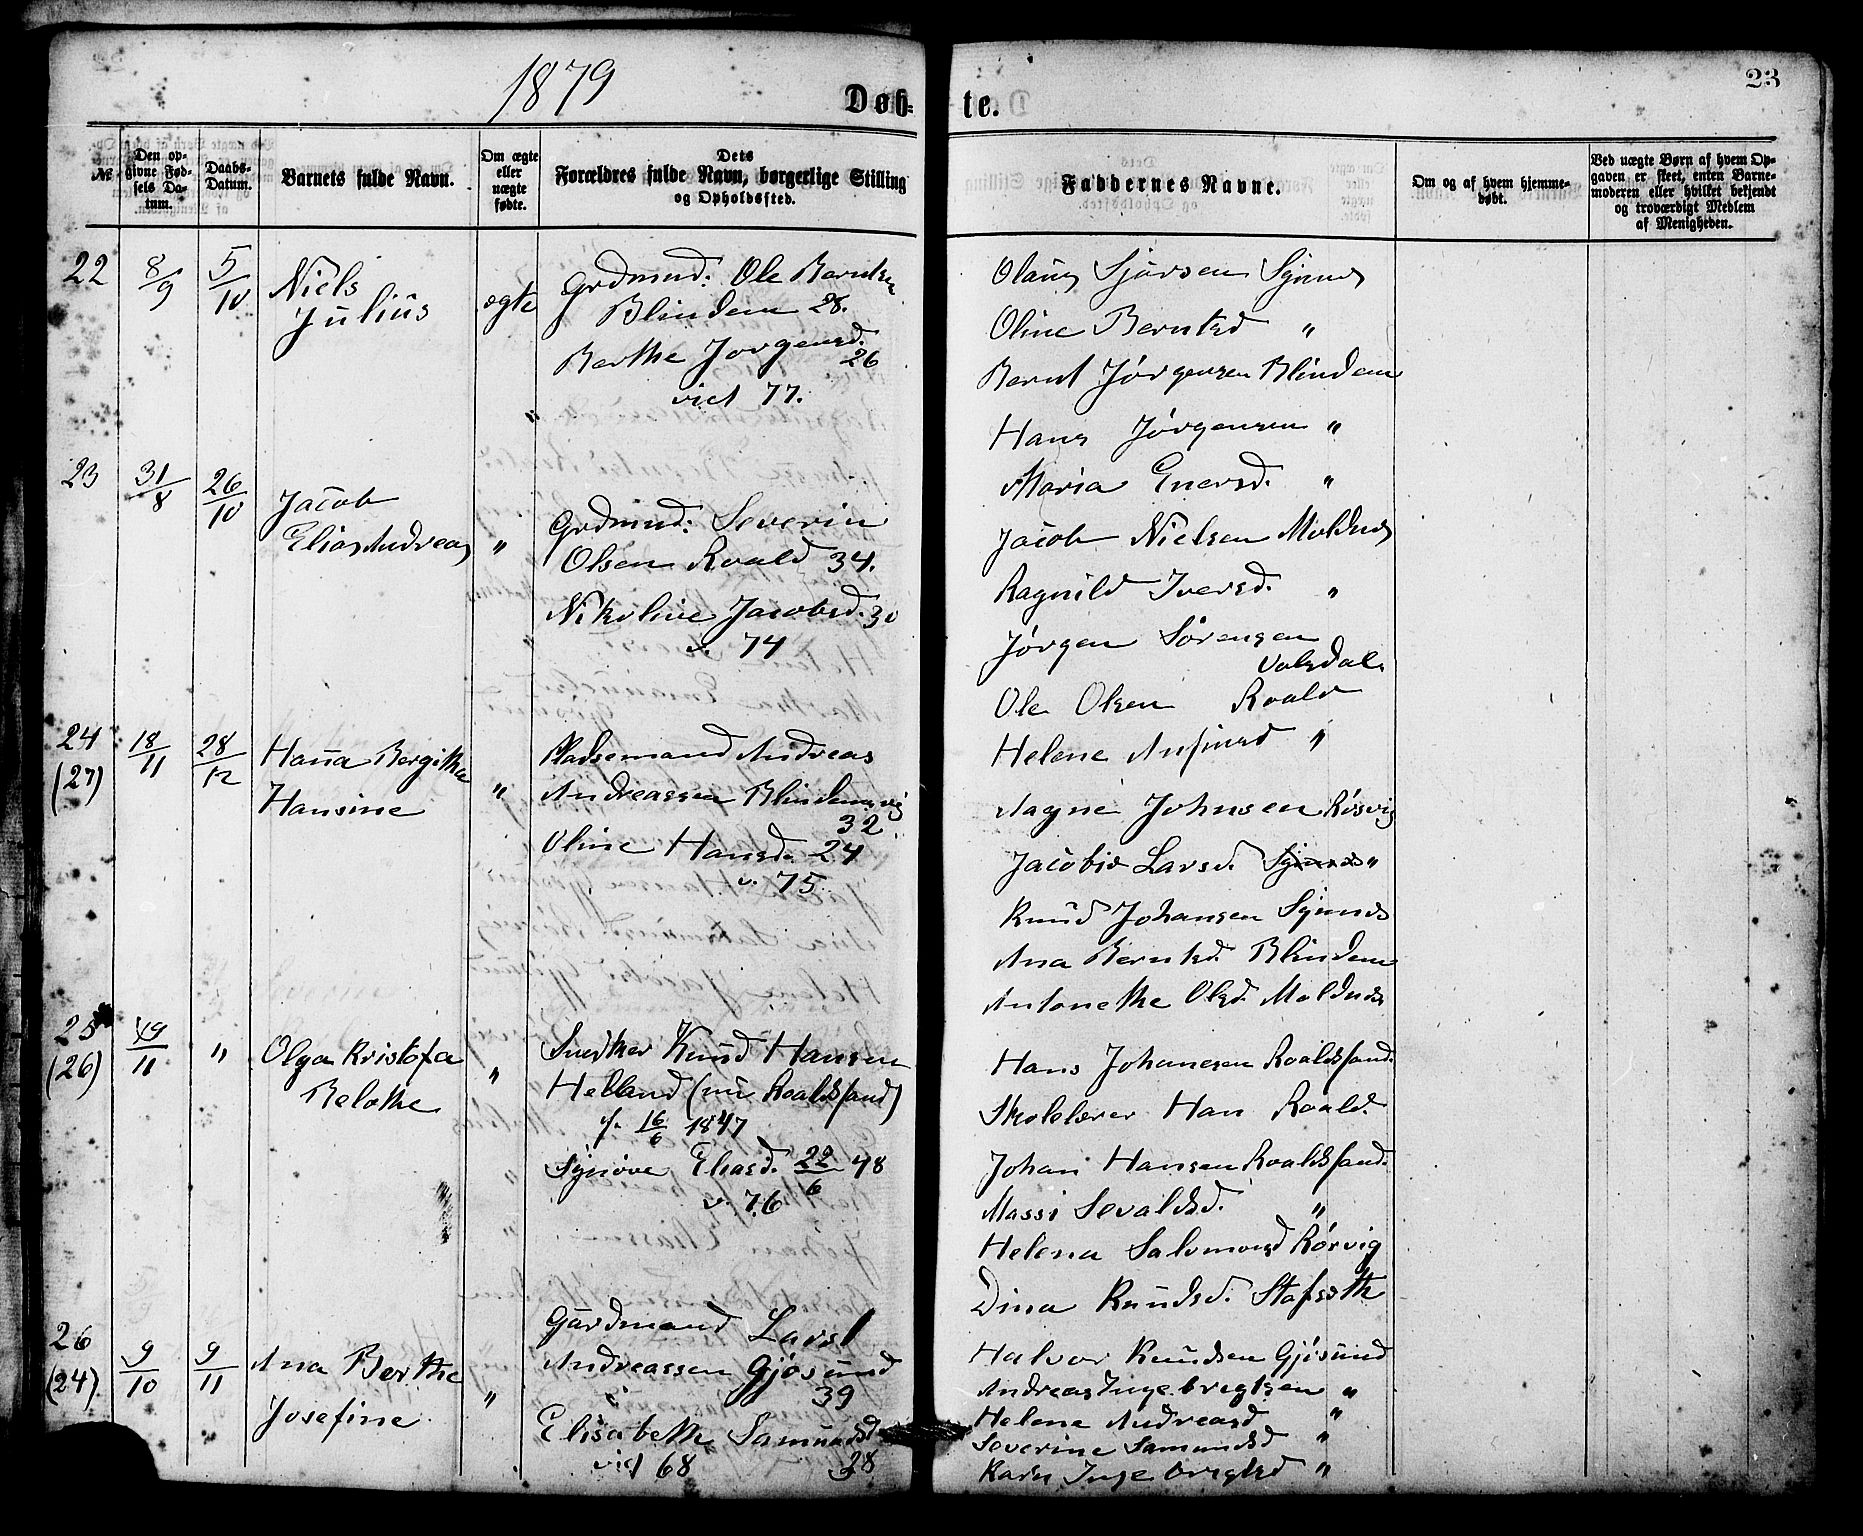 1879
Døb-
№
Den op-
givne Fød-
sels Da-
tum.
Daabs-
Datum.
Barnets fulde Navn.
Om ægte
eller
nægte
fødte.
Dets
Forældres fulde Navn, borgerlige Stilling
og Opholdssted.
22
8/9
5/10
Niels
Julius
ægte
Grdmnd: Ole Berntsen
Blindem 28.
Berthe Jørgensd.
26
viet 77.
"
23
31/8
26/10
Jacob
Elias Andreas
"
Grdmnd: Severin
Olsen Roald 34.
Nikoline Jacobsd. 30
v. 74
24
(27)
18/11
28/12
Hana Bergitha
Hansine
"
Pladsemand Andreas
Andreassen Blindemsvig
32
Oline Hansd. 24
v. 75.
25
(26)
19/11
"
Olga Kristofa
Belothe
"
Snedker Knud Hansen
Helland (nu Roaldssand)
f. 16/6 1847
Synøve Eliasd. 22/6 48
v. 76
26
(24)
9/10
9/11
Ana Berthe
Josefine
"
Gardmand Lars
Andreassen Gjøsund
39
Elisabethe Samundsd
viet 68 38
te.
23
Faddernes Navne.
Om og af hvem hjemme-
døbt.
Ved nægte Børn af hvem Op-
gaven er skeet, enten Barne-
moderen eller hvilket bekjendt
og troværdigt Medlem
af Menigheden.
Olaus Sjursen Synnes
Oline Berntsd "
Bernt Jørgensen Blindem
Hans Jørgensen "
Maria Enersd. "
Jacob Nielsen Moldnes
Ragnild Iversd. "
Jørgen Sørensen
Valsdal.
Ole Olsen Roald
Helene Anfinsd "
Aagne Johnsen Røsvig
Jacobie Larsd. Synnes "
Knud Johansen Synnes
Ana Berntsd. Blindem
Antonethe Olsd. Moldnes
Hans Johansen Roaldssand.
Skolelærer Han Roald.
Johan Hansen Roaldssand.
Massi Sevaldsd. "
Helena Salomonsd Rørvig
Dina Knudsd. Stafseth
Halvor Knudsen Gjøsund
Andreas Ingebrigtsen "
Helene Andreasd "
Severine Samundsd "
Karn Ingebrigtsd "